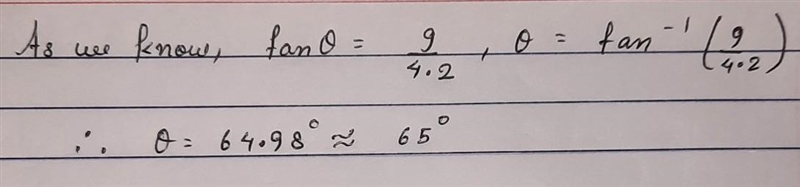 As we know, tanθ = 9/4.2, θ = tan⁻¹(9/4.2)
∴ θ = 64.98° ≈ 65°